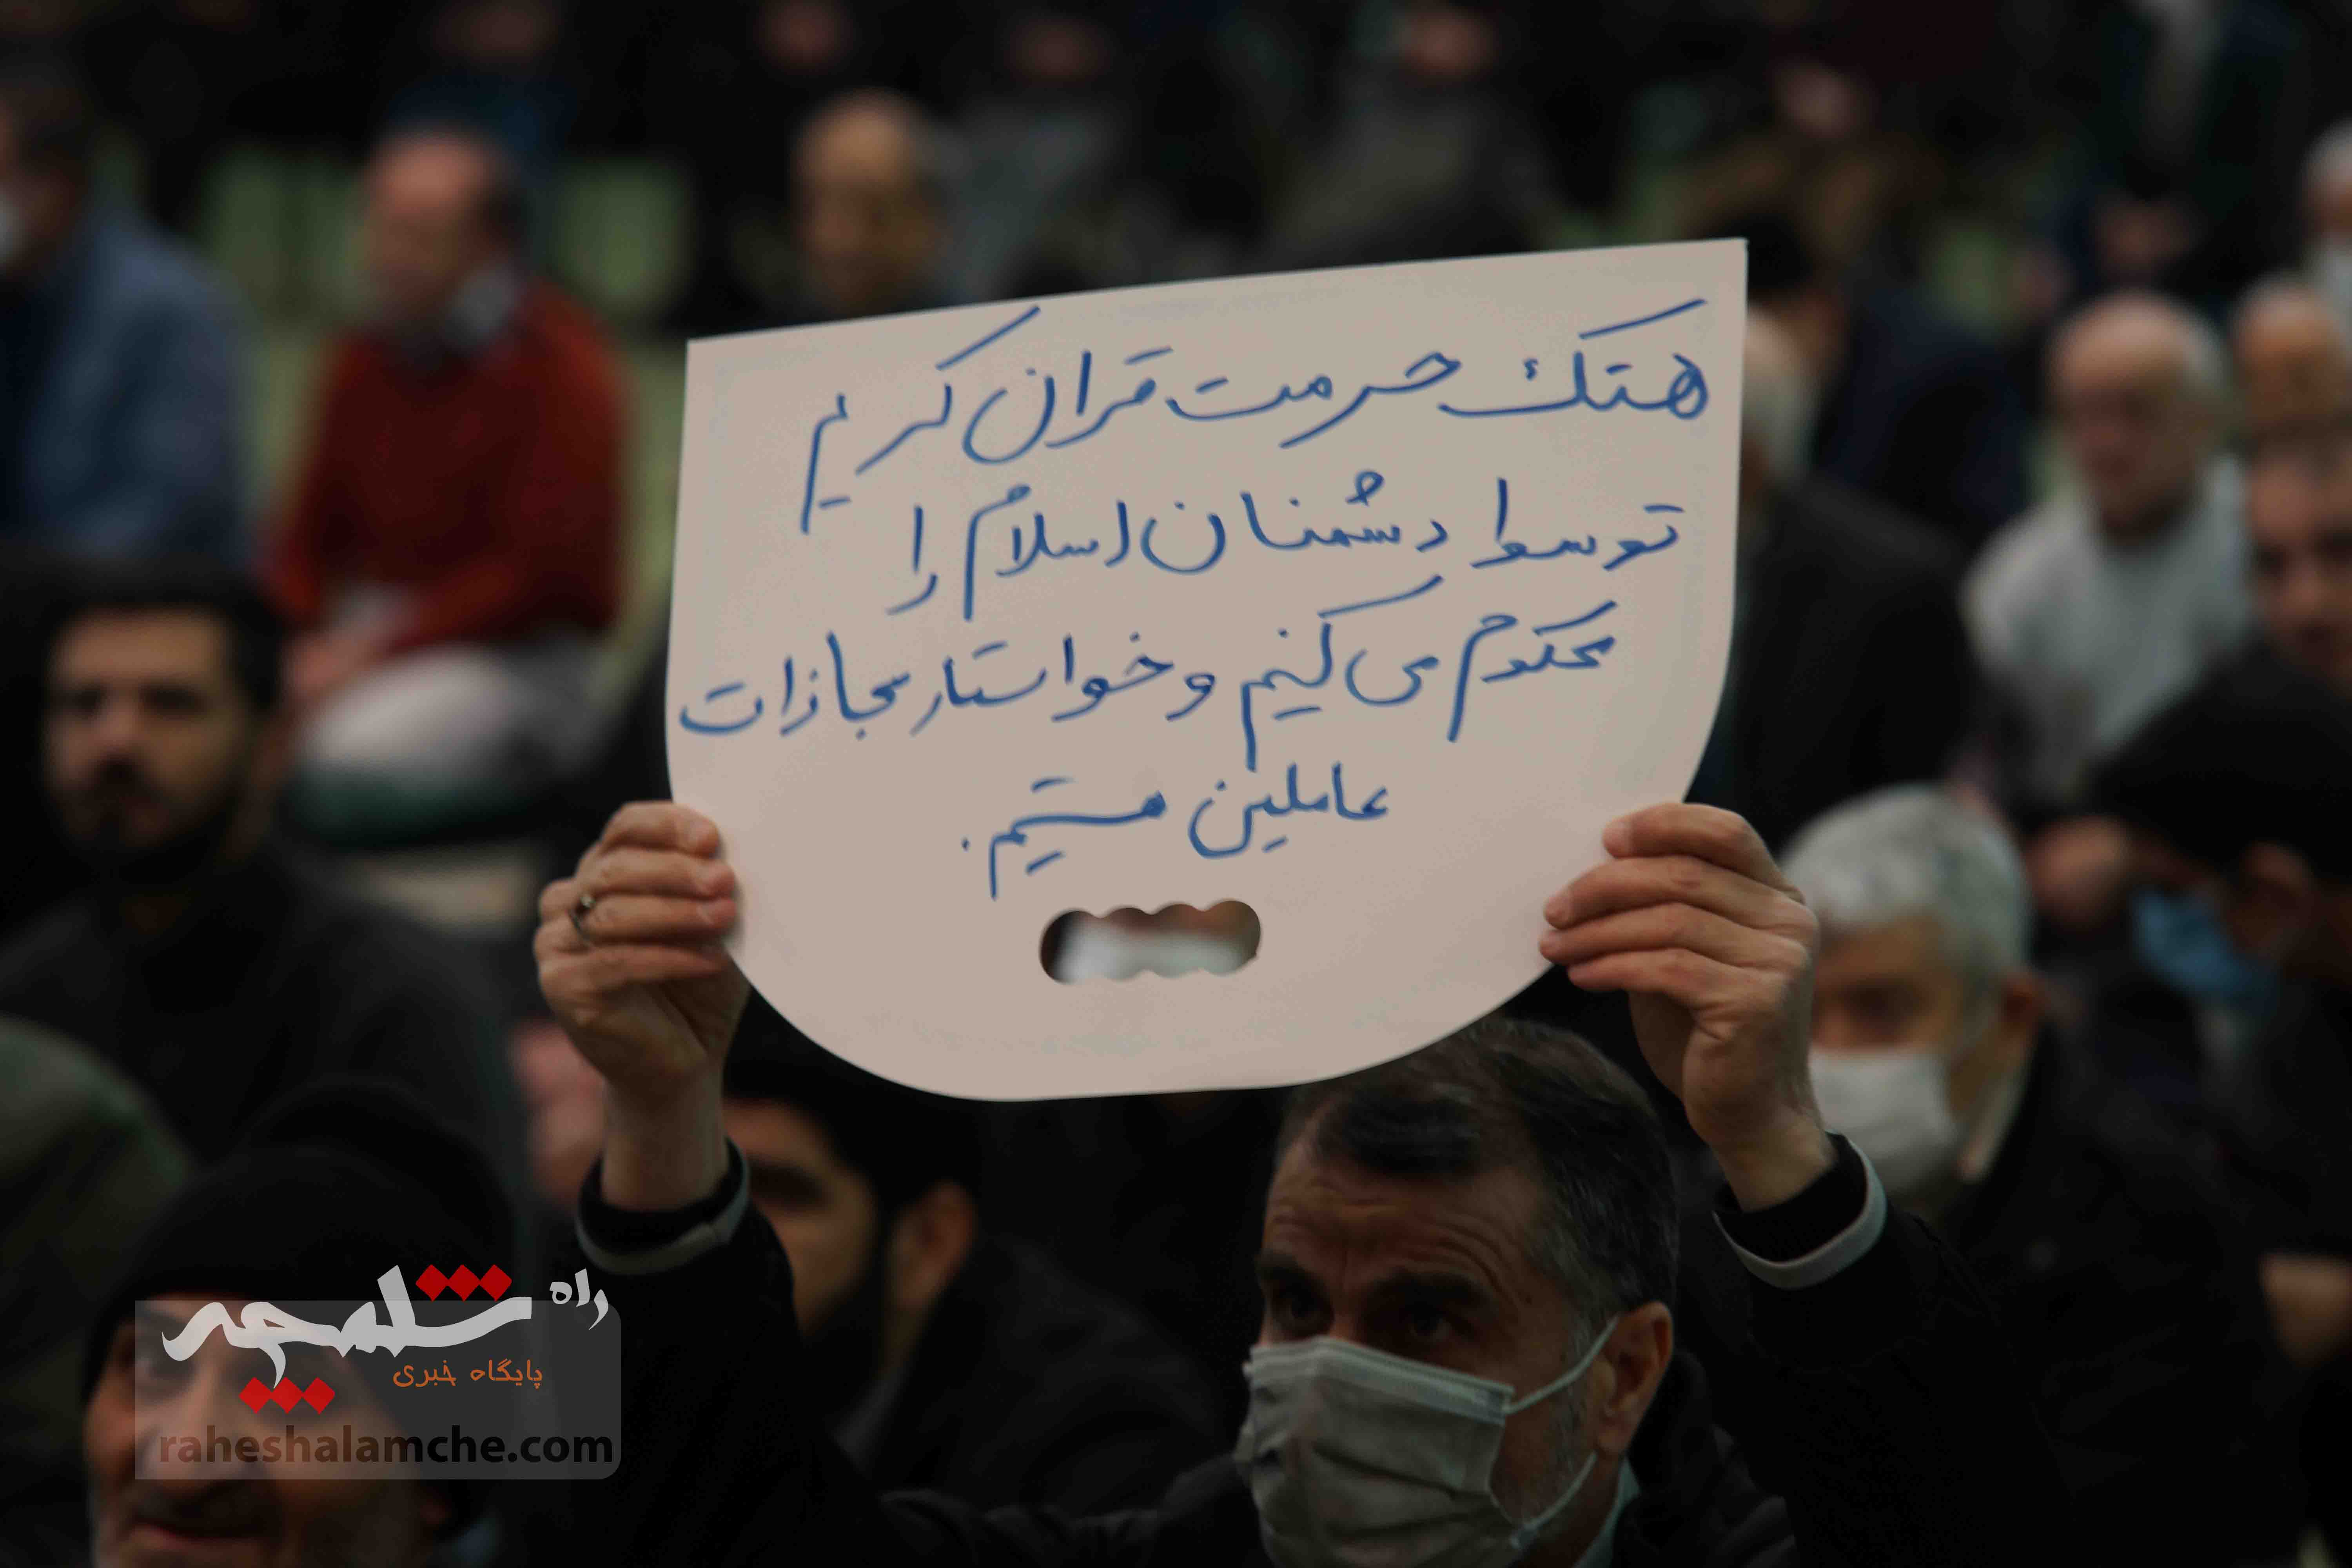 هتک حرمت قران کریم
توسط دشمنان اسلام را
محکوم می کنیم و خواستار مجازات
عاملین هستیم.
راه شلمچه
پایگاه خبری
raheshalamche.com